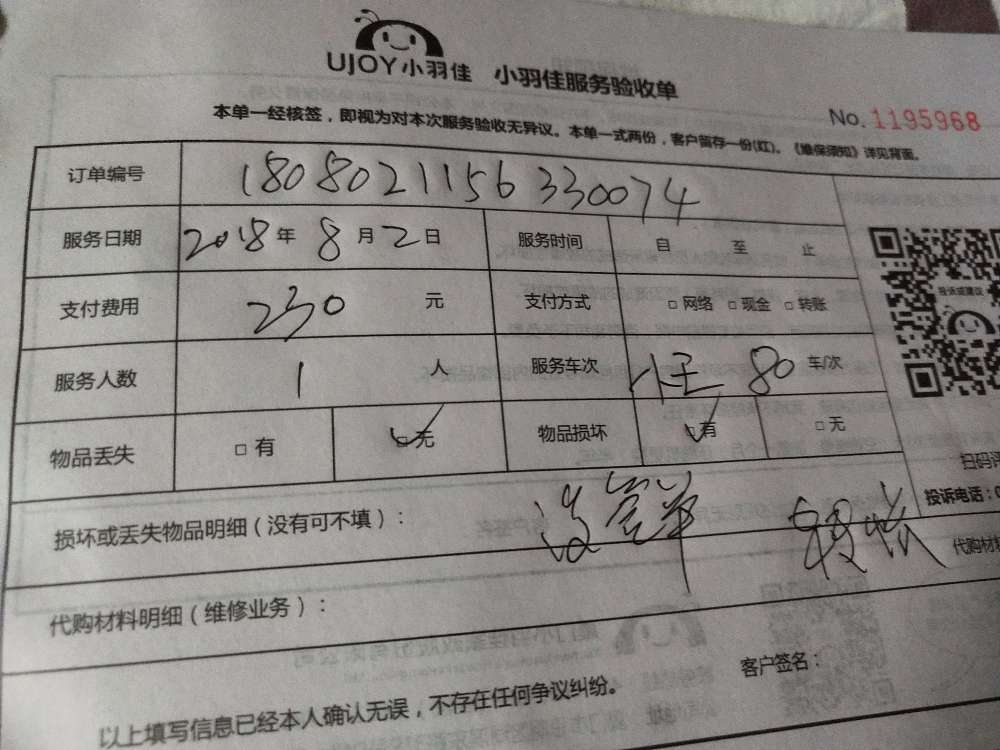 UJOY小羽佳 小羽佳服务验收单
No. 1195968
本单一经核签，即视为对本次服务验收无异议。本单一式两份，客户留存一份(红)。《维保须知》详见背面。
订单编号 1808021156330074
服务日期 2018年 8月2日 服务时间 自 至 止
支付费用 230 元 支付方式 □网络 □现金 □转账
服务人数 1 人 服务车次 小王 80 车/次
物品丢失 □有 □无 物品损坏 □有 □无
投诉或建议
扫码评
投诉电话：0
损坏或丢失物品明细（没有可不填）：
代购材料
代购材料明细（维修业务）：
客户签名：
以上填写信息已经本人确认无误，不存在任何争议纠纷。